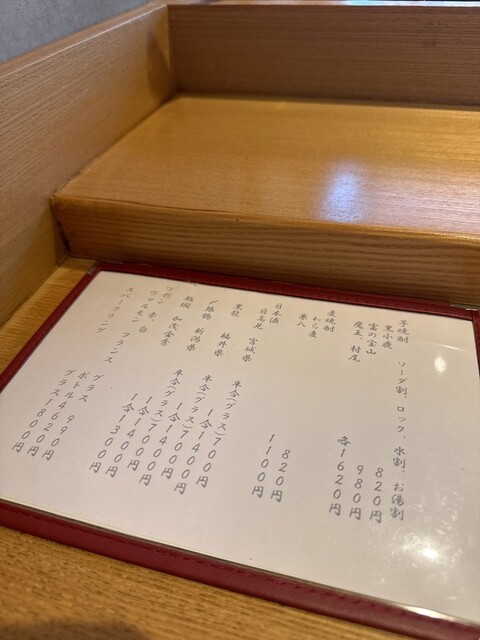 芋焼酎 ソーダ割、ロック、水割、お湯割
黒小鹿 820円
富の宝山 980円
魔王、村尾 各1620円
麦焼酎
わら麦 820円
兼八 1100円
日本酒
日高見 宮城県 半合(グラス)700円
1合1400円
黒龍 福井県 半合(グラス)700円
1合1400円
〆張鶴 新潟県 半合(グラス)700円
1合1400円
加茂金秀 1合1300円
ワイン
ヴァルモン 赤、白 フランス グラス 990円
ボトル4620円
スパークリング グラス1800円